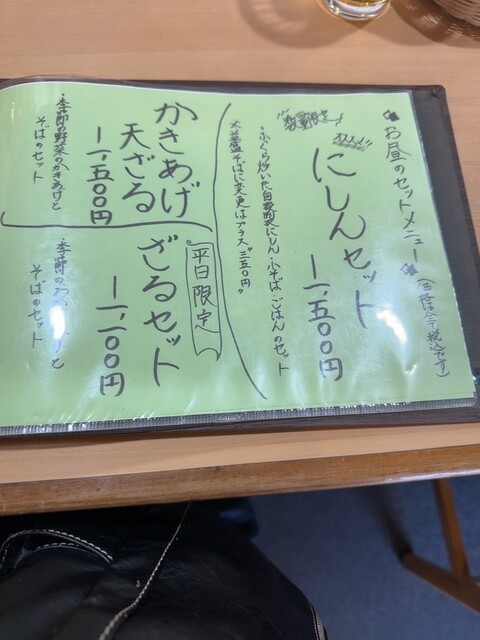 お昼のセットメニュー
(価格は全て税込です)
数量限定
おススメ!!
にしんセット
一、五〇〇円
・ふっくら炊いた自家製にしん・小そば・ごはんのセット
そばに変更はプラス"三五〇円"
かきあげ
天ざる
一、五〇〇円
・季節の野菜のかきあげと
そばのセット
平日限定
ざるセット
一、一〇〇円
・季節の
と
そばのセット